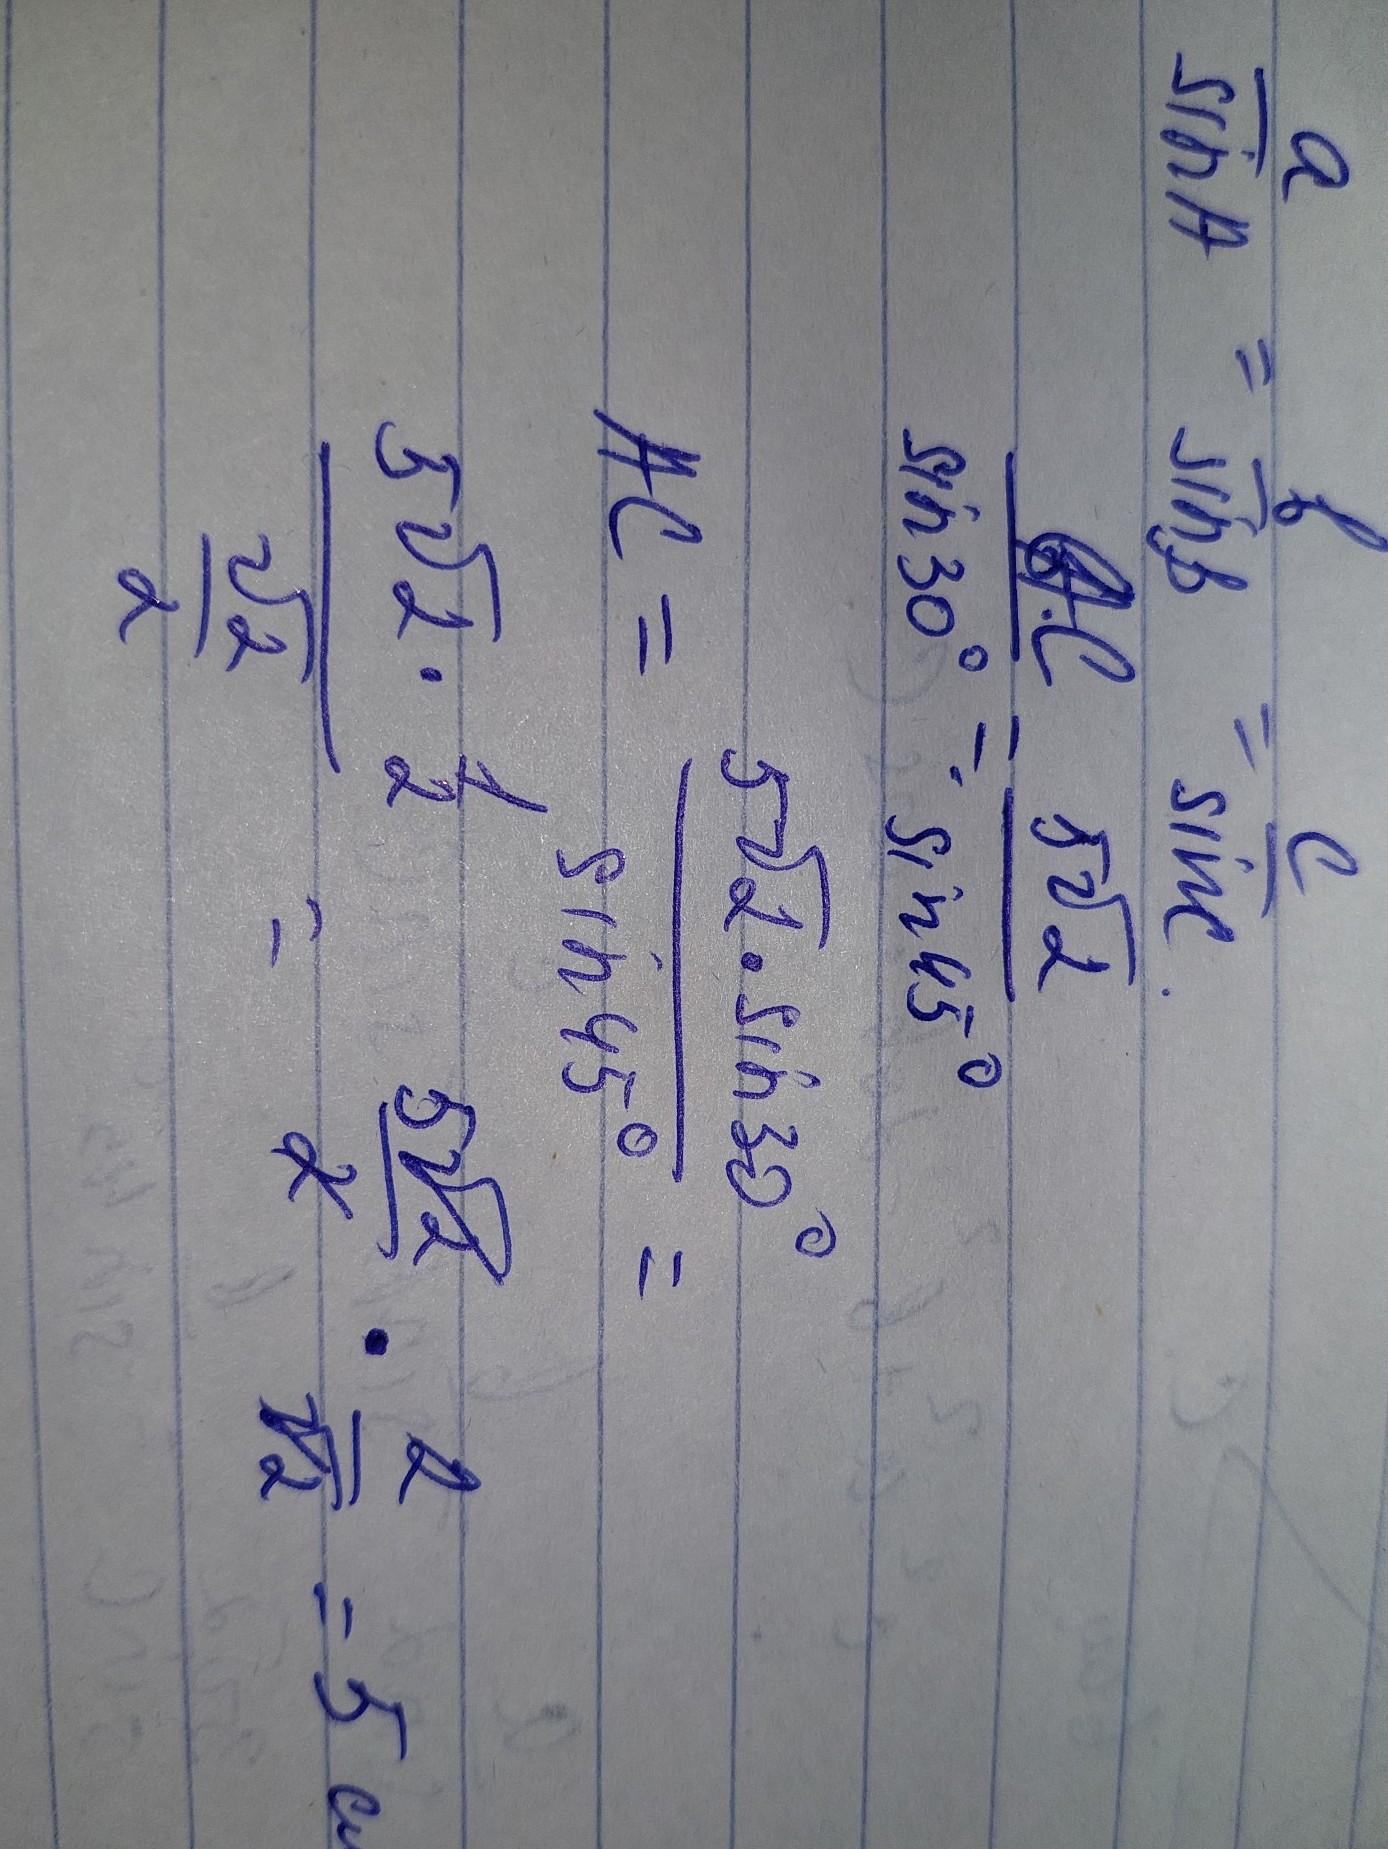 a/sinA = b/sinB = c/sinC.
AC/sin30° = 5√2/sin45°
AC = 5√2·sin30°/sin45° =
5√2·1/2 / √2/2 = 5√2/2 · 2/√2 = 5 см